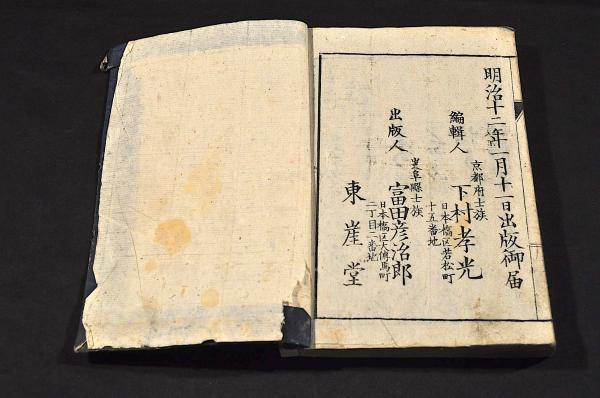 明治十二年一月十一日出版御届
京都府士族
編輯人 下村孝光
日本橋区若松町
十五番地
岐阜縣士族
出版人 富田彦治郎
日本橋区大傳馬町
二丁目二番地
東崖堂